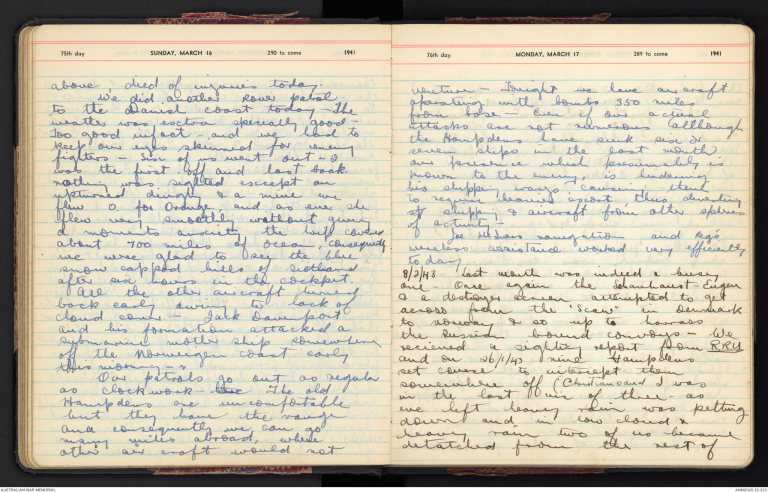 75th day SUNDAY, MARCH 16 290 to come 1941
above, died of injuries today.
We did another Rover patrol
to the Danish coast today - The
weather was extra specially good -
Too good in fact - and we had to
keep our eyes skinned for enemy
fighters - Six of us went out - I
was the first off and last back
nothing was sighted except an
upturned dinghy & a mine we
flew O for Orange, and as ever she
flew very smoothly without giving
a moments anxiety the trip covered
about 700 miles of ocean, consequently
we were glad to see the blue
snow capped hills of Scotland
after six hours in the cockpit.
All the other aircraft turned
back early owing to lack of
cloud cover - Jack Davenport
and his formation attacked a
submarine mother ship somewhere
off the Norwegen coast early
this morning -
Our patrols go out as regular
as clock work - The old
Hampdens are uncomfortable
but they have the range
and consequently we can go
many miles abroad, where
other air craft would not
76th day MONDAY, MARCH 17 289 to come 1941
venture - Tonight we have an craft
operating with bombs 350 miles
from base - Even if our actual
attacks are not numerous (although
the Hampdens have sunk six or
seven ships in the last month)
our presence which presumably is
known to the enemy, is hindering
his shipping ways - causing them
to require heavier escort, thus diverting
shipping & aircraft from other spheres
of activity -
Joe navigation and Reg's
wireless assistance worked very efficiently
today
8/2/43 Last month was indeed a busy
one - Once again the Scharnhorst - Eugen
& a destroyer screen attempted to get
across from the "Scaw" in Denmark
to norway & so up to harrass
the russian bound convoys - We
recieved a sighting report from R.R.U
and on 26/1/43 nine Hampdens
set course to intercept them
somewhere off (Christiansand I was
in the last vic of three - as
we left heavy rain was pelting
down and in low cloud &
heavy rain two of us became
detatched from the rest of
AUSTRALIAN WAR MEMORIAL